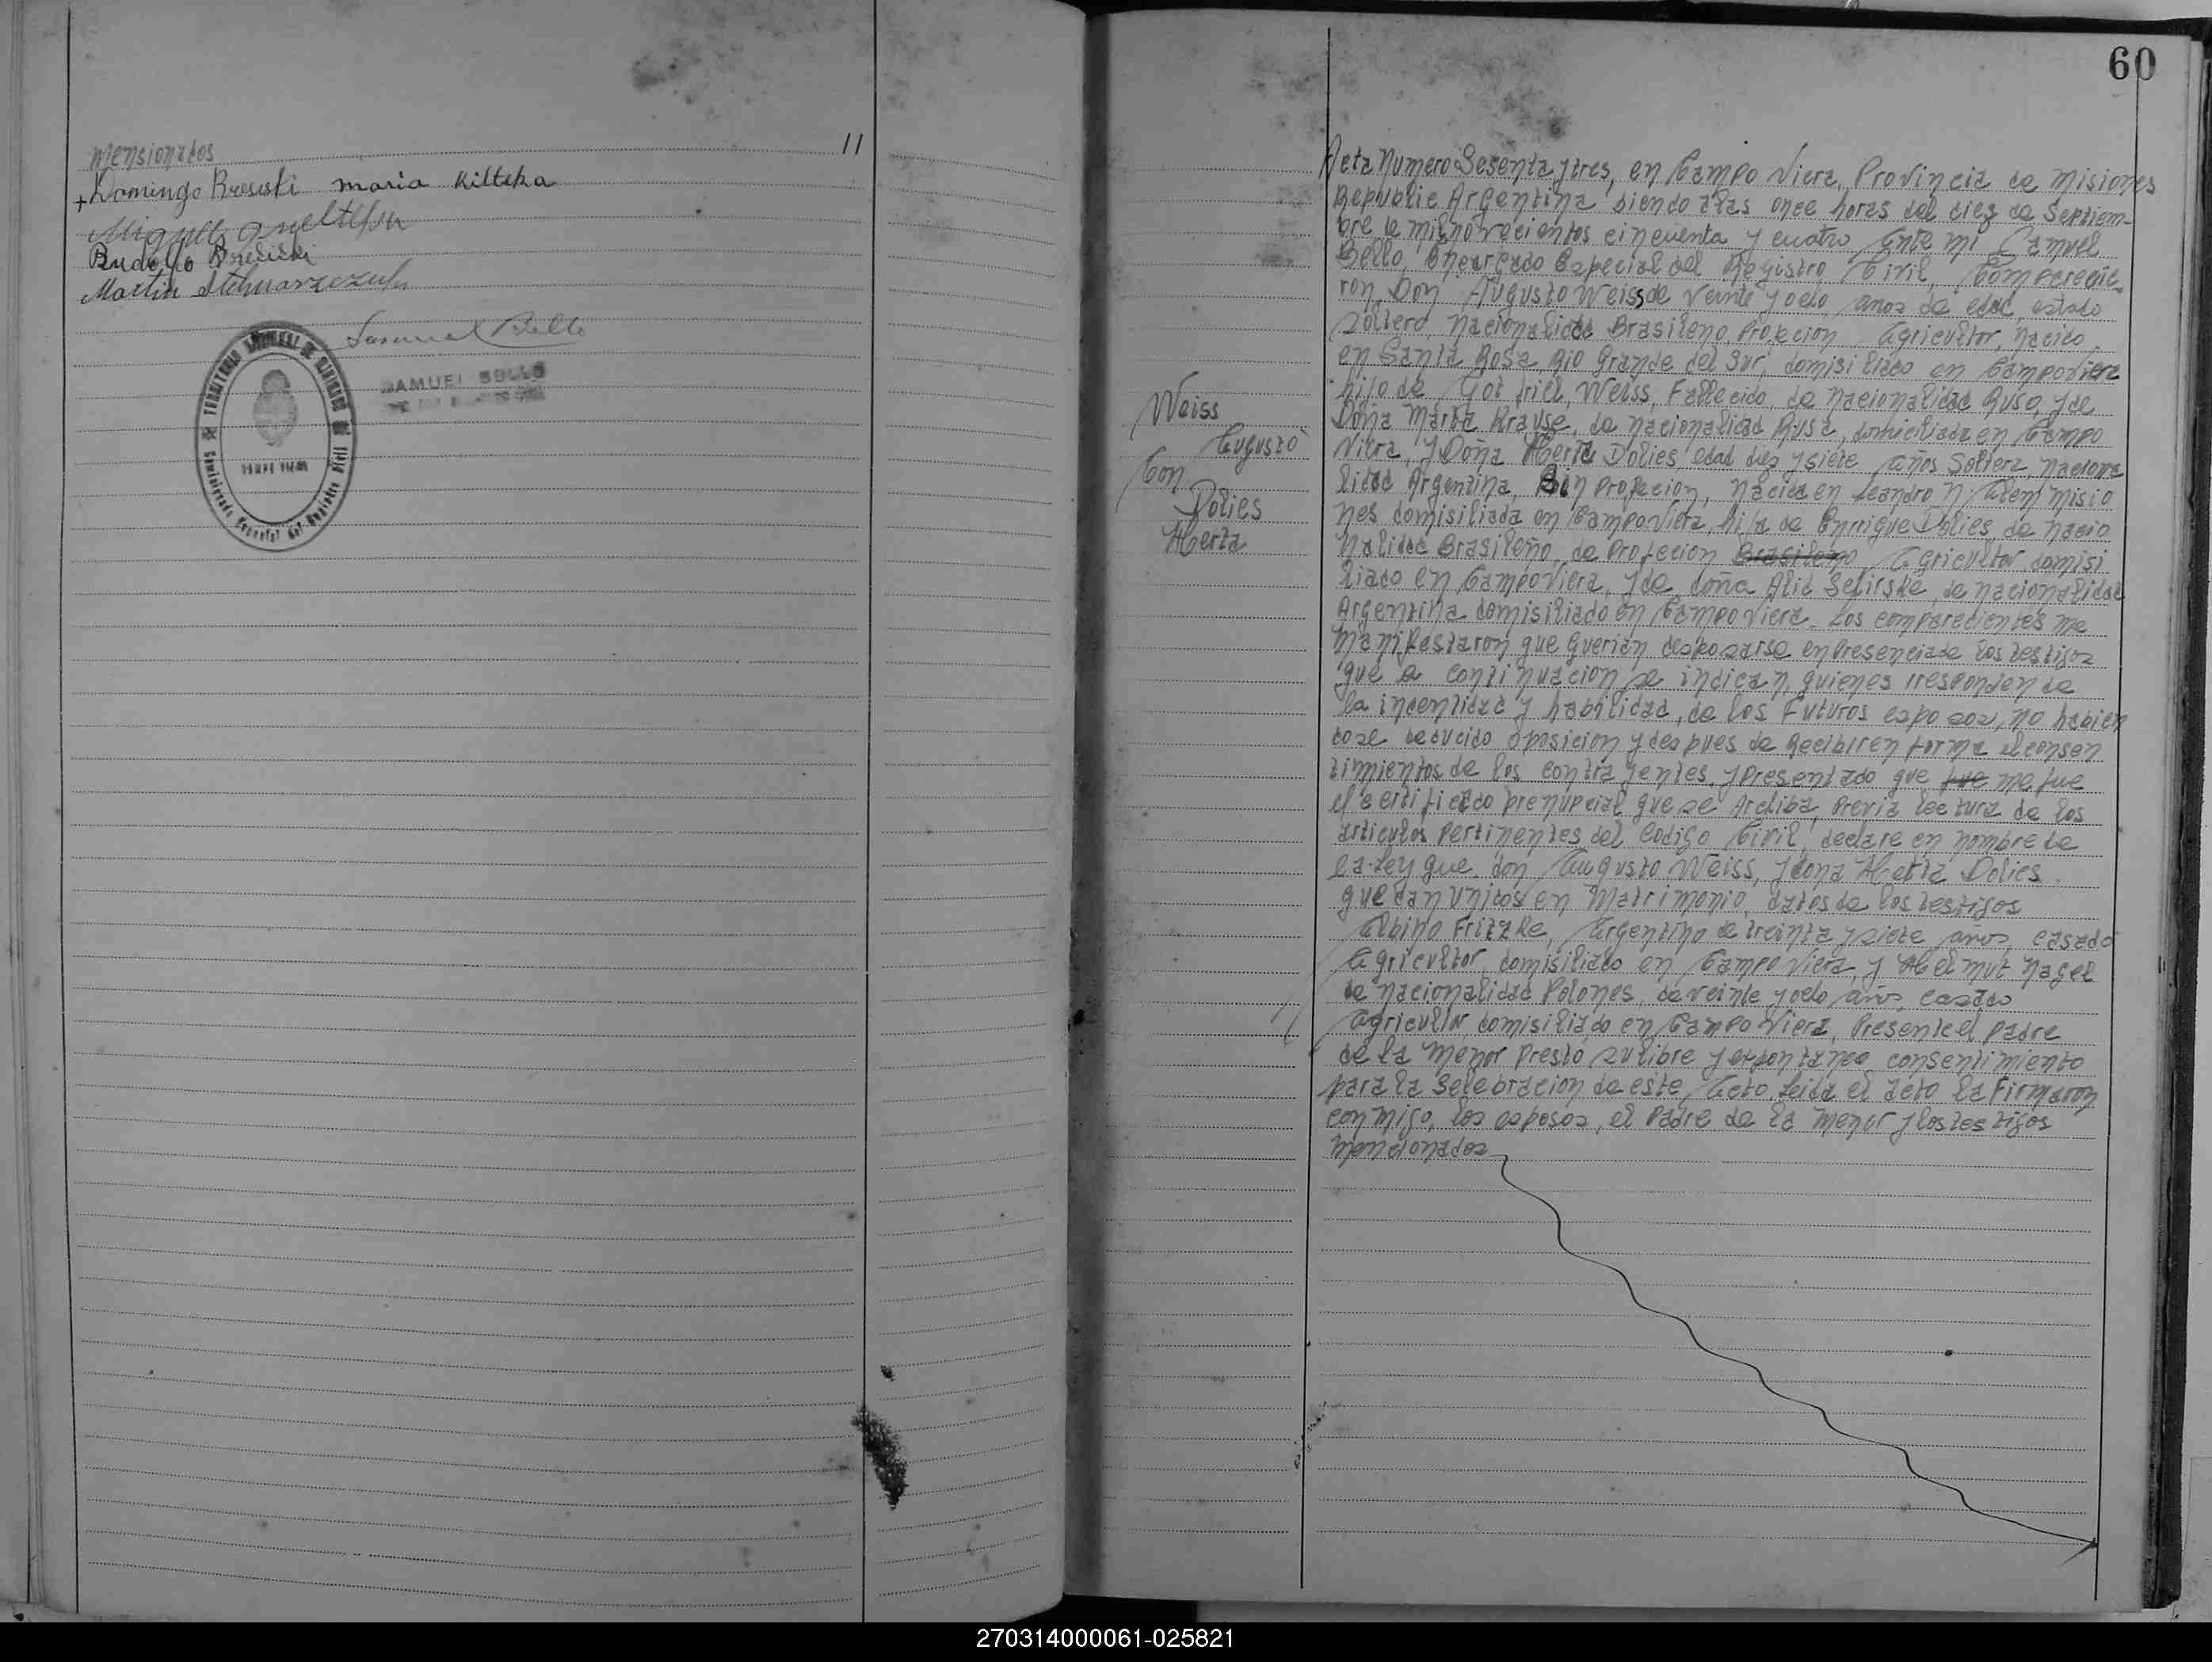 11
mensionados
+ Domingo Bresiski maria Kilteka
Miguel
Rudolfo Bresiski
Martin
Samuel Bello
TERRITORIO NACIONAL DE MISIONES
SAMUEL BELLO
60
Weiss
Augusto
Con
Dolies
Herta
Acta Numero Sesenta y tres, en Campo Viera, Provincia de Misiones
Republic Argentina siendo a las once horas del diez de Septiem-
bre de mil novecientos cincuenta y cuatro Ante mi Samuel
Bello, Encargado Especial del Registro Civil, Comparecie
ron, Don Augusto Weiss de veinte y ocho años de edad, estado
soltero, Nacionalidad Brasileno, Profecion Agricultor, nacido
en Santa Rosa, Rio Grande del Sur, domisiliado en Campo Viera
hijo de Got friel, Weiss, Fallecido, de nacionalidad Ruso, y de
Doña Marta Krause, de nacionalidad Rusa, domiciliada en Campo
Viera, y Doña Herta Dolies edad diez y siete años Soltera, naciona
lidad Argentina, Sin profecion, nacida en Leandro N Alem Misio
nes domisiliada en Campo Viera, hija de Enrrique Dolies, de nacio
nalidad Brasileño, de Profecion Brasileno Agricultor domisi
liado en Campo Viera, y de doña Alid Sefirske, de nacionalidad
Argentina domisiliado en Campo Viera. Los comparecientes me
manifestaron que querian desposarse en presencia de los testigos
que a continuacion se indican, quienes rresponden de
la indentidad y habilidad, de los Futuros esposos, no habien
dose deducido oposicion y despues de Recibir en forma el consen
timientos de los contra yentes, y presentado que fue me fue
el certificado prenupcial que se Archiba, previa lectura de los
articulos Pertinentes del Codigo Civil, declare en nombre de
la Ley que don Augusto Weiss, y dona Herta Dolies
quedan unidos en Matrimonio, datos de los testigos
Albino Fritzke, Argentino de treinta y siete años, casado
Agricultor, domisiliado en Campo Viera, y Helmut Nagel
de nacionalidad Polones, de veinte y ocho años casado
agricultor domisiliado en Campo Viera, Presente el padre
de la menor presto su libre y espontaneo consentimiento
para la Selebracion de este Acto. Leida el acto la Firmaron
con migo, los esposos, el Padre de la menor y los testigos
mencionados
270314000061-025821